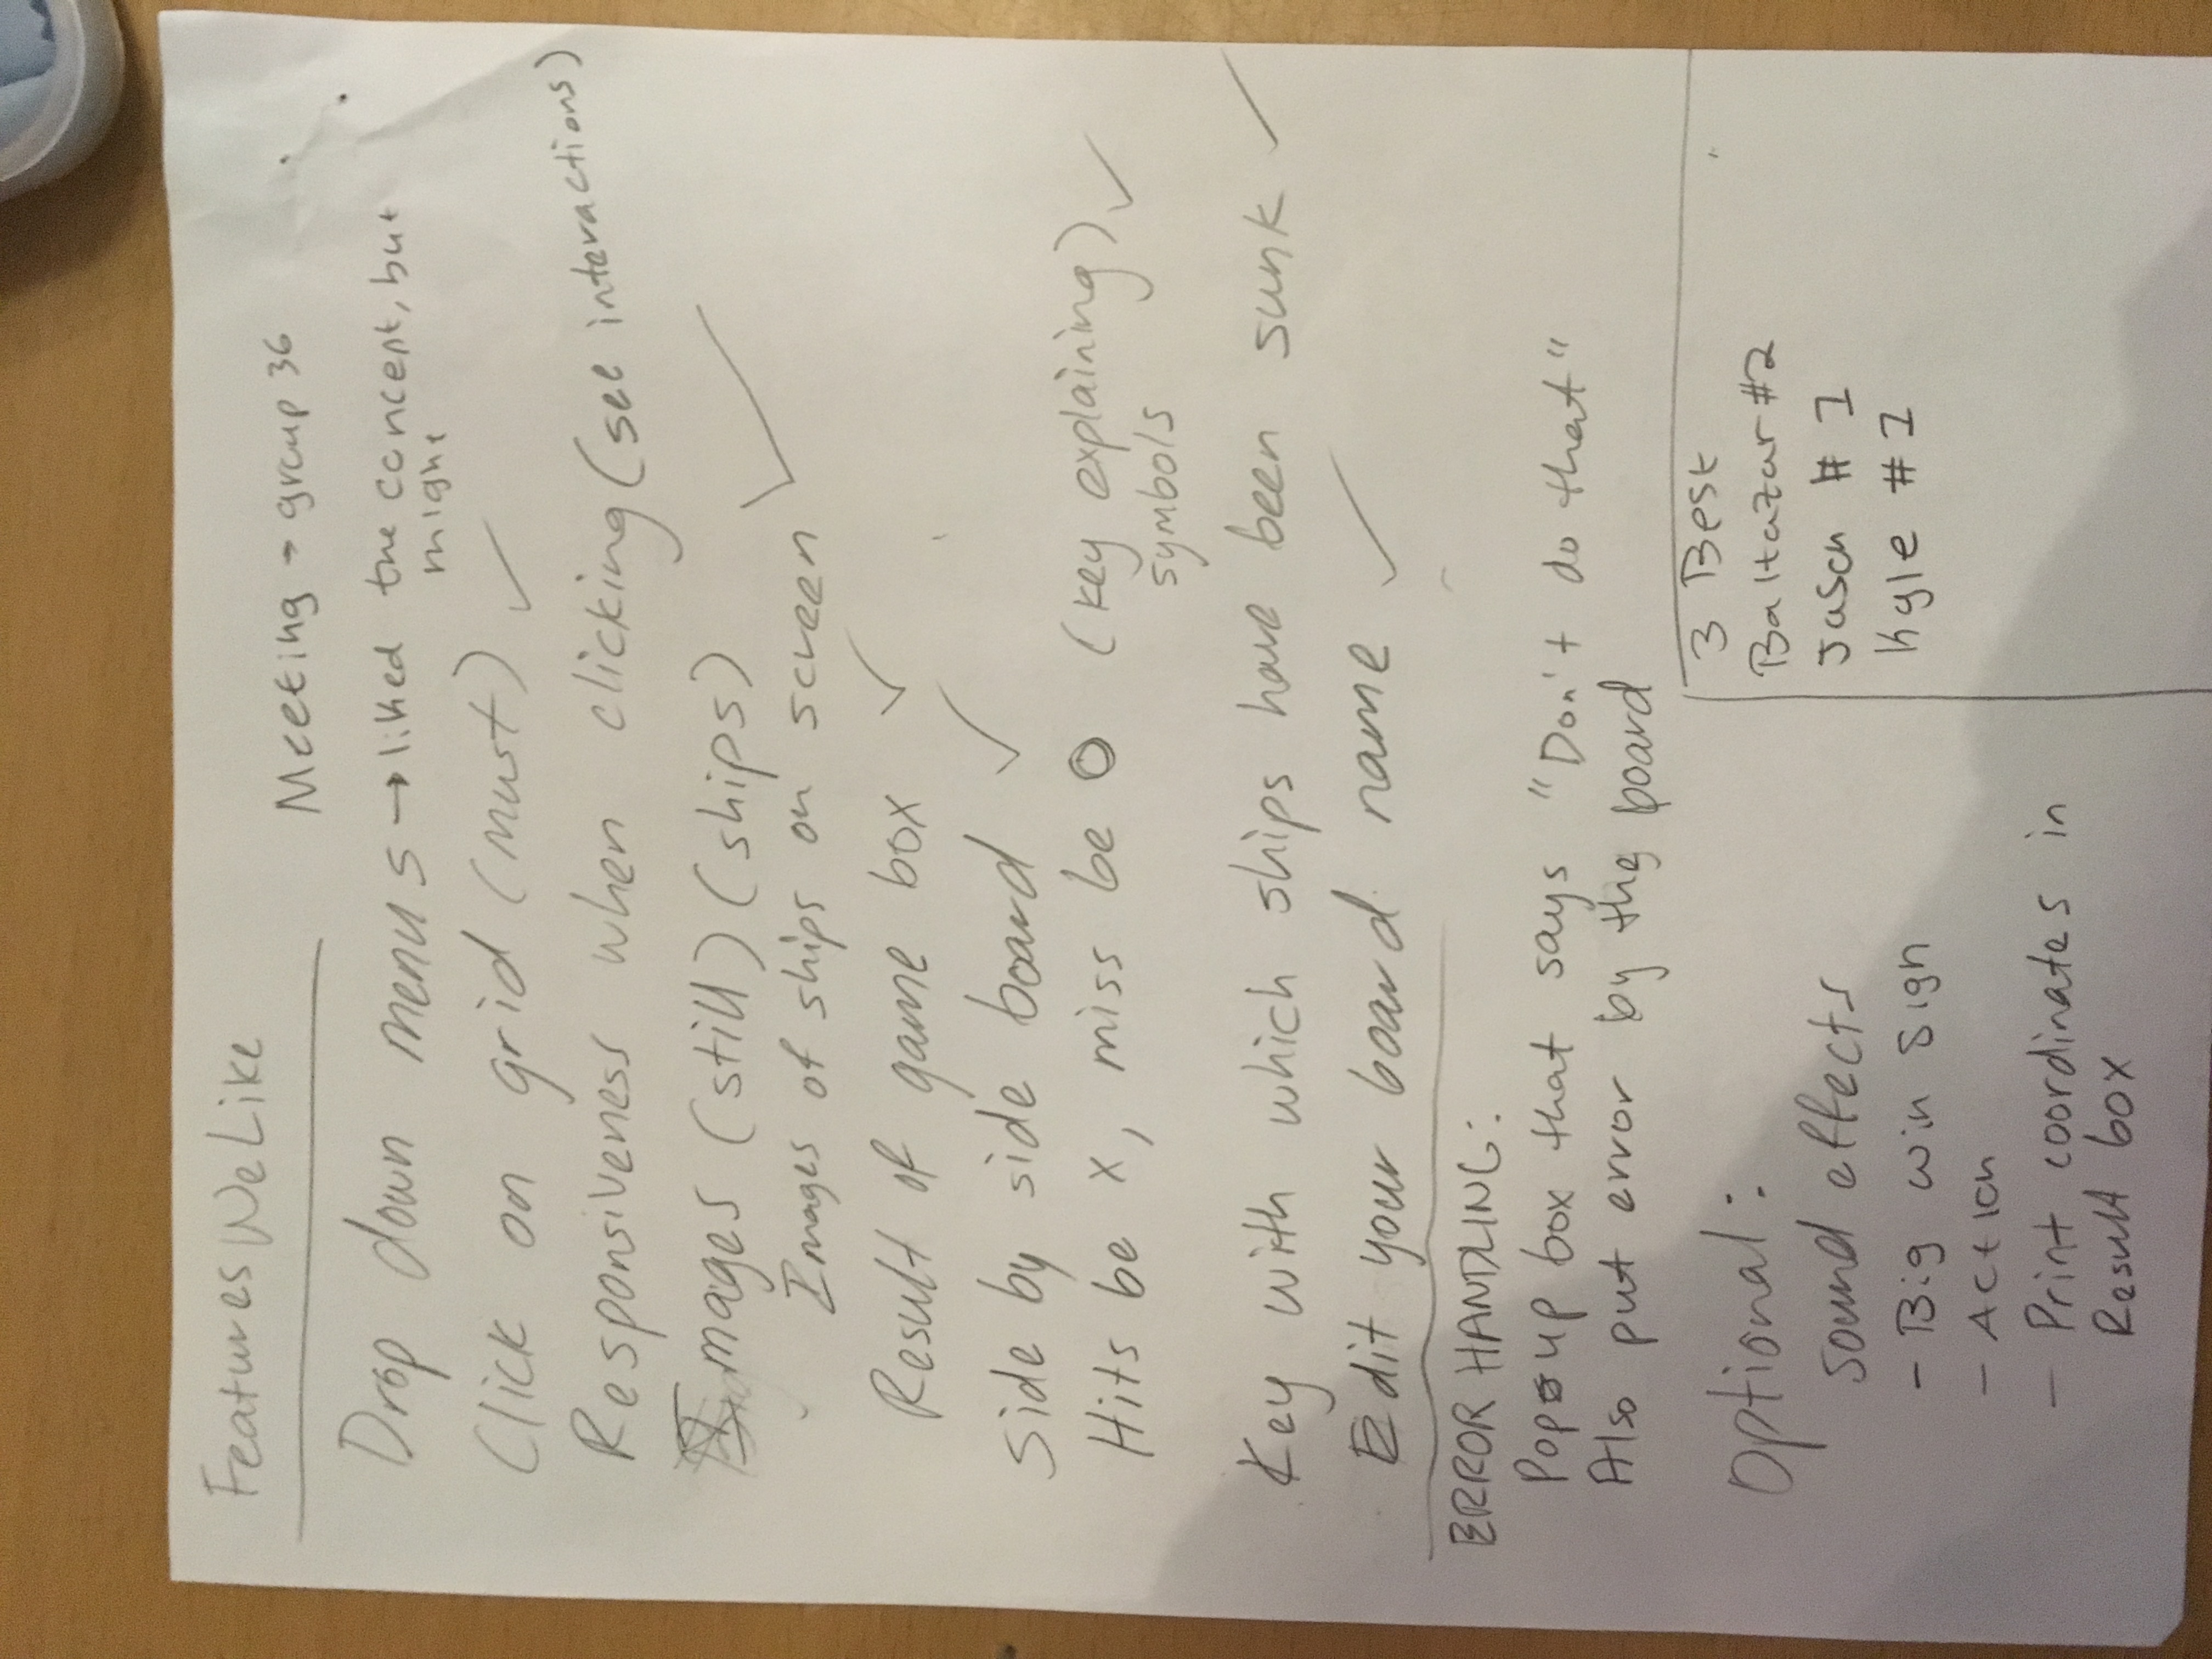 Features We Like
Meeting - group 36
Drop down menus → liked the concept, but
might
Click on grid (must) ✓
Responsiveness when clicking (see interactions)
Images (still) (ships)
Images of ships on screen ✓
Result of game box ✓
Side by side board ✓
Hits be x, miss be O (key explaining) ✓
symbols
Key with which ships have been sunk ✓
Edit your board name ✓
ERROR HANDLING:
Pop up box that says "Don't do that"
Also put error by the board
Optional:
sound effects
- Big win sign
- Action
- Print coordinates in
Result box
3 Best
Baltazar #2
Jason # 1
Kyle # 1